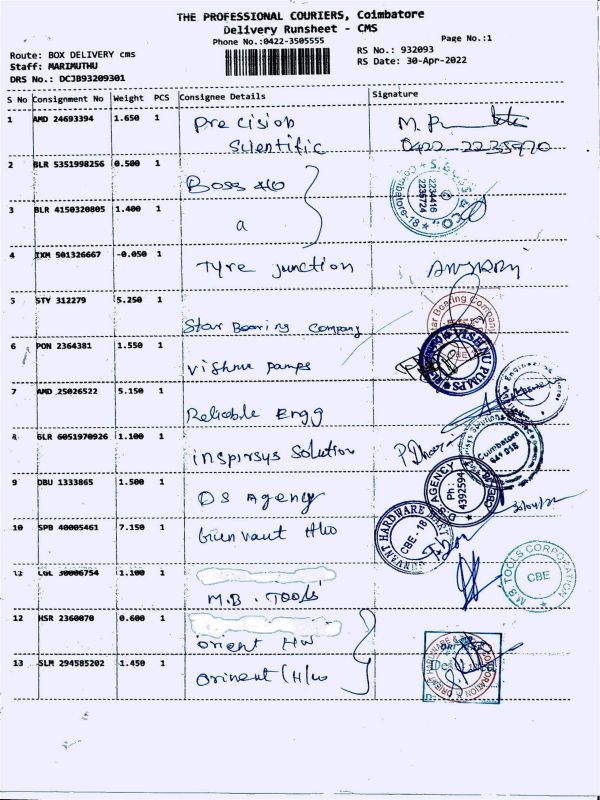 THE PROFESSIONAL COURIERS, Coimbatore
Delivery Runsheet - CMS
Phone No.:0422-3505555
Page No.:1
Route: BOX DELIVERY cms
Staff: MARIMUTHU
DRS No.: DCJB93209301
RS No.: 932093
RS Date: 30-Apr-2022
S No Consignment No Weight PCS Consignee Details Signature
1 AMD 24693394 1.650 1 Precision Scientific M. 0422-2235970
2 BLR 5351998256 0.500 1 Boss H/O
3 BLR 4150320805 1.400 1 a
2234416
2235724
Coimbatore-18
4 IXM 501326667 -0.050 1 Tyre junction
5 STY 312279 5.250 1 Star Bearing Company
Star Bearing Company
6 PON 2364381 1.550 1 vishnu pumps
VISHNU PUMPS
7 AMD 25026522 5.150 1 Reliable Engg
8 BLR 6051970926 1.100 1 inspirsys Solution
Coimbatore
641 018
9 DBU 1333865 1.500 1 DS Agency
D.S. AGENCY
Ph:
4392594
30/04/22
10 SPB 40005461 7.150 1 Gunvant H/w
GUNVANT HARDWARE MART
CBE - 18
11 CGL 30006754 1.100 1 M.B. Tools
M.B TOOLS CORPORATION
CBE
12 HSR 2360070 0.600 1 orient HW
13 SLM 294585202 1.450 1 Orinent (H/w
ORIENT HARDWARE &
CORPORATION